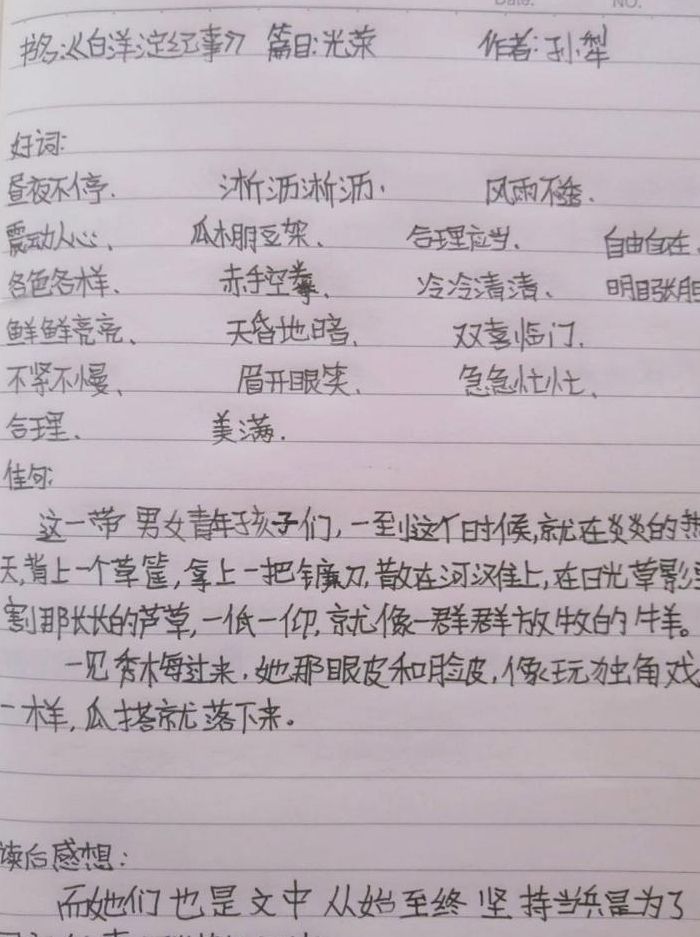 Date. NO.
书名:《白洋淀纪事》 篇目:光荣 作者:孙犁
好词:
昼夜不停、 淅沥淅沥、 风雨不透、
震动人心、 瓜棚豆架、 合理应当、 自由自在、
各色各样、 赤手空拳、 冷冷清清、 明目张胆
鲜鲜亮亮、 天昏地暗、 双喜临门、
不紧不慢、 眉开眼笑、 急急忙忙、
合理、 美满.
佳句:
这一带男女青年孩子们,一到这个时候,就在炎炎的热
天,背上一个草筐,拿上一把镰刀,散在河滩上,在日光草影里
割那长长的芦草,一低一仰,就像一群群放牧的牛羊。
一见秀梅过来,她那眼皮和脸皮,像玩独角戏
一样,瓜搭就落下来。
读后感想:
而她们也是文中从始至终坚持当兵是为了